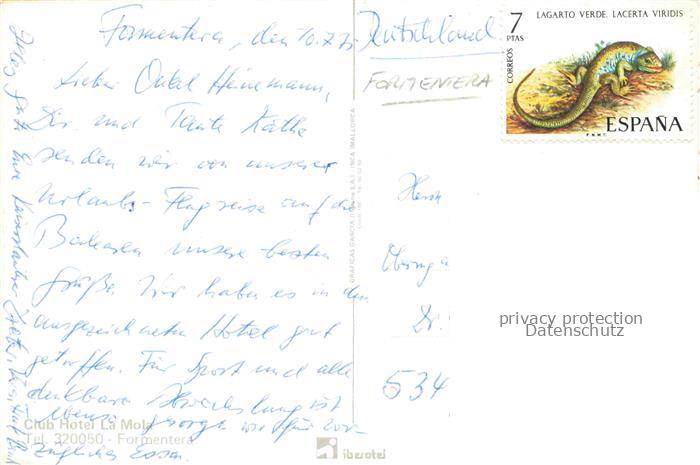 Formentera, den 10.7.75
Lieber Onkel Heinemann,
Dir und Tante Käthe
senden wir von unserer
Urlaubs-Flugreise auf die
Balearen unsere besten
Grüße. Wir haben es in dem
ausgezeichneten Hotel gut
getroffen. Für Sport und alle
denkbare Abwechslung ist
ebenso gesorgt wie für vor-
zügliches Essen.
Club Hotel La Mola
Tel. 320050 - Formentera
GRAFICAS GARCIA
INCA (MALLORCA)
iberotel
Deutschland
FORMENTERA
7
PTAS
CORREOS
LAGARTO VERDE. LACERTA VIRIDIS
F.N.M.T.
ESPAÑA
Herrn
Dr.
534
privacy protection
Datenschutz